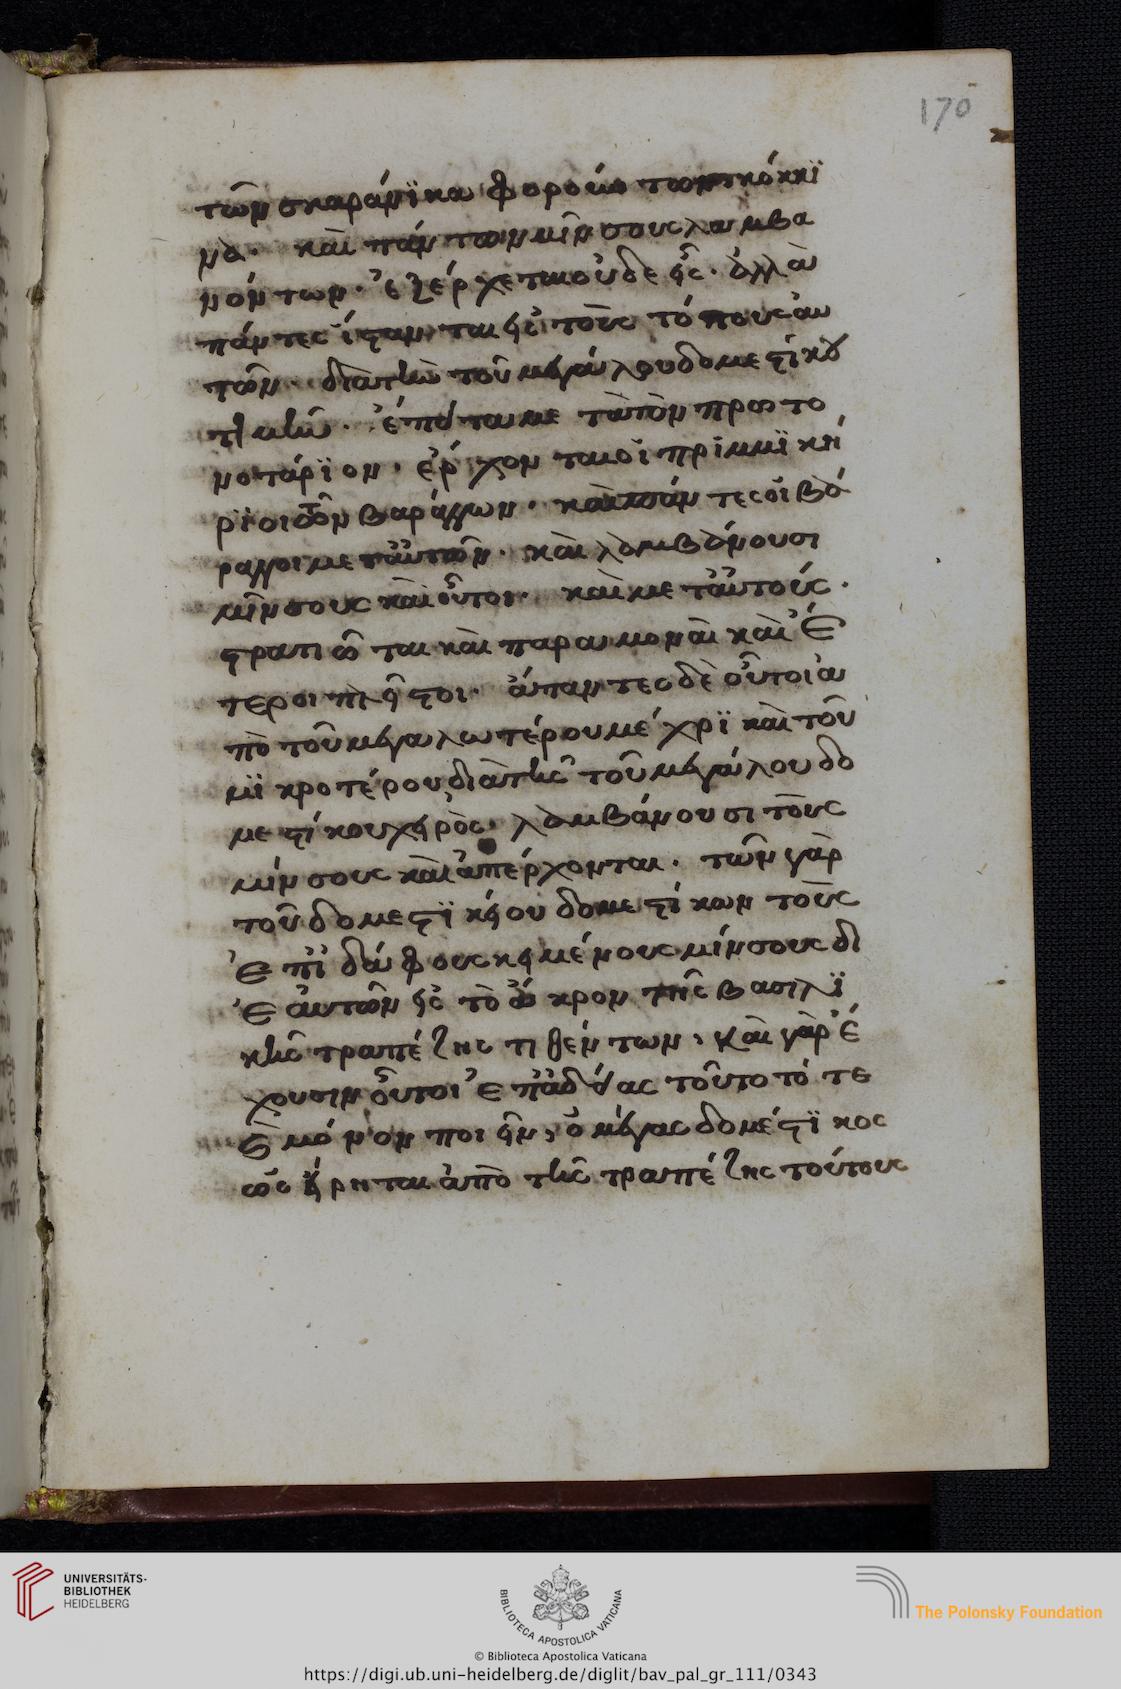 170
τῶν σκαράνϊκα φορούντων κόκκϊ
να. καὶ πάντων μῖνσους λαμβα
νόντων. ἐξέρχεται οὐδε εἷς. ἀλλὰ
πάντες ἵσταν ται εἰς τοὺς τόπους αὐ
τῶν. διὰ τὴν τοῦ μεγάλου δομεστίκου
τιμὴν. ἔπειτα με τὰ τὸν πρωτο
νοτάρϊον. ἔρχον ται οἱ πριμμϊκή
ρϊοι τῶν βαράγγων. καὶ πάν τες οἱ βά
ραγγοι με τ' αὐτῶν. καὶ λαμβάνουσι
μῖνσους καὶ οὗτοι. καὶ με τ' αὐτούς.
στρατιῶται καὶ παραμοναὶ καὶ ἕ
τεροι πλεῖστοι. ἅπαντες δὲ οὗτοι ἀ
πὸ τοῦ μεγαλωτέρου μέχρϊ καὶ τοῦ
μϊκροτέρου διὰ τῆς τοῦ μεγάλου δο
μεστίκου χειρὸς. λαμβάνουσι τοὺς
μίνσους καὶ ἀπέρχονται. τῶν γὰρ
τοῦ δομεστϊκείου δομεστίκων τοὺς
ἐπ' ἐδάφους κειμένους μίνσους δι
ἑαυτῶν εἰς τὸ ἄκρον τῆς βασιλϊ
κῆς τραπέζης τιθέντων, καὶ γὰρ ἔ
χουσιν οὗτοι ἐπ' ἀδείας τοῦτο τότε
καὶ μόνον ποιεῖν, ὁ μέγας δομέστϊκος
ὡς εἴρηται ἀπὸ τῆς τραπέζης τούτους
UNIVERSITÄTS-
BIBLIOTHEK
HEIDELBERG
BIBLIOTECA APOSTOLICA VATICANA
The Polonsky Foundation
© Biblioteca Apostolica Vaticana
https://digi.ub.uni-heidelberg.de/diglit/bav_pal_gr_111/0343